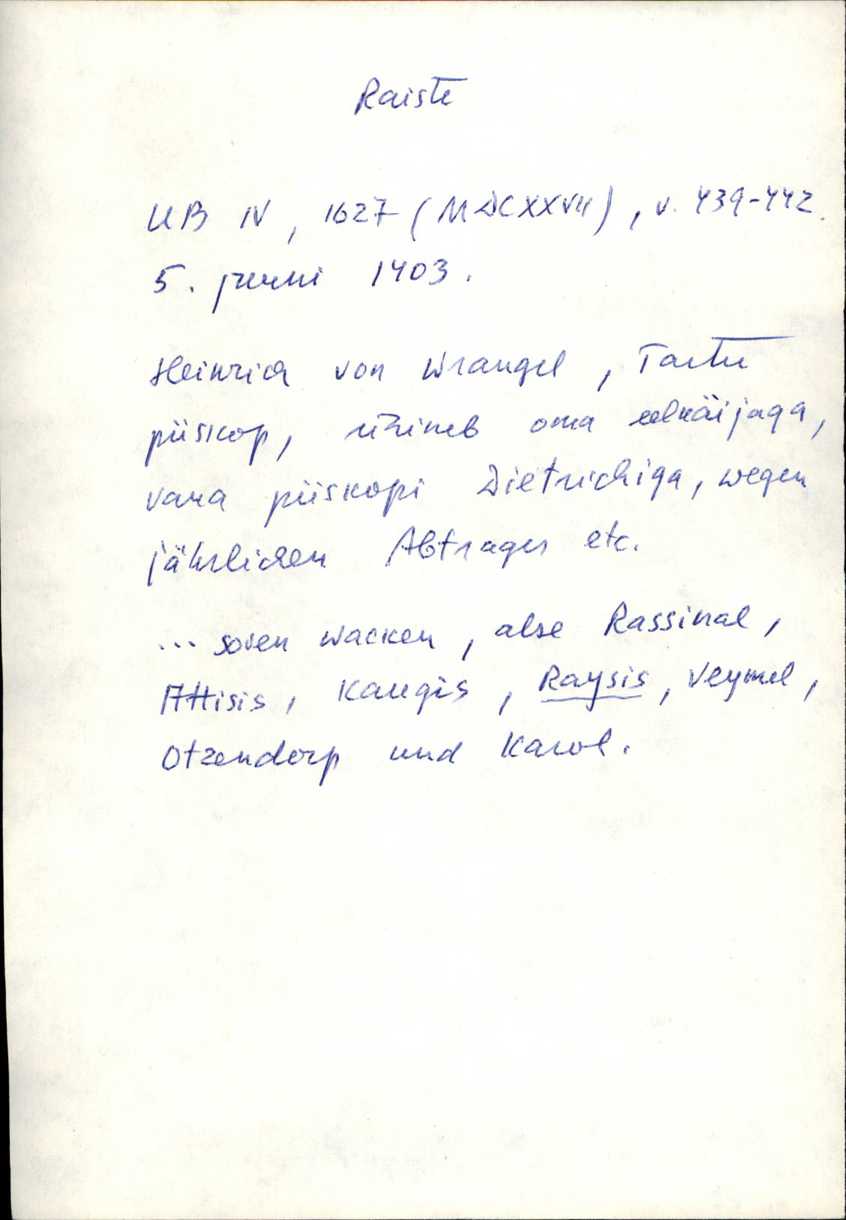 Raiste
UB IV, 1627 (MDCXXVII), v. 439-442.
5. juuni 1403.
Heinrich von Wrangel, Tartu
piiskop, ühineb oma eelkäijaga,
vana piiskopi Dietrichiga, wegen
jährlichen Abtrages etc.
... soven wacken, alse Rassinal,
Attisis, Kaugis, Raysis, Veymel,
Otzendorp und Karol.